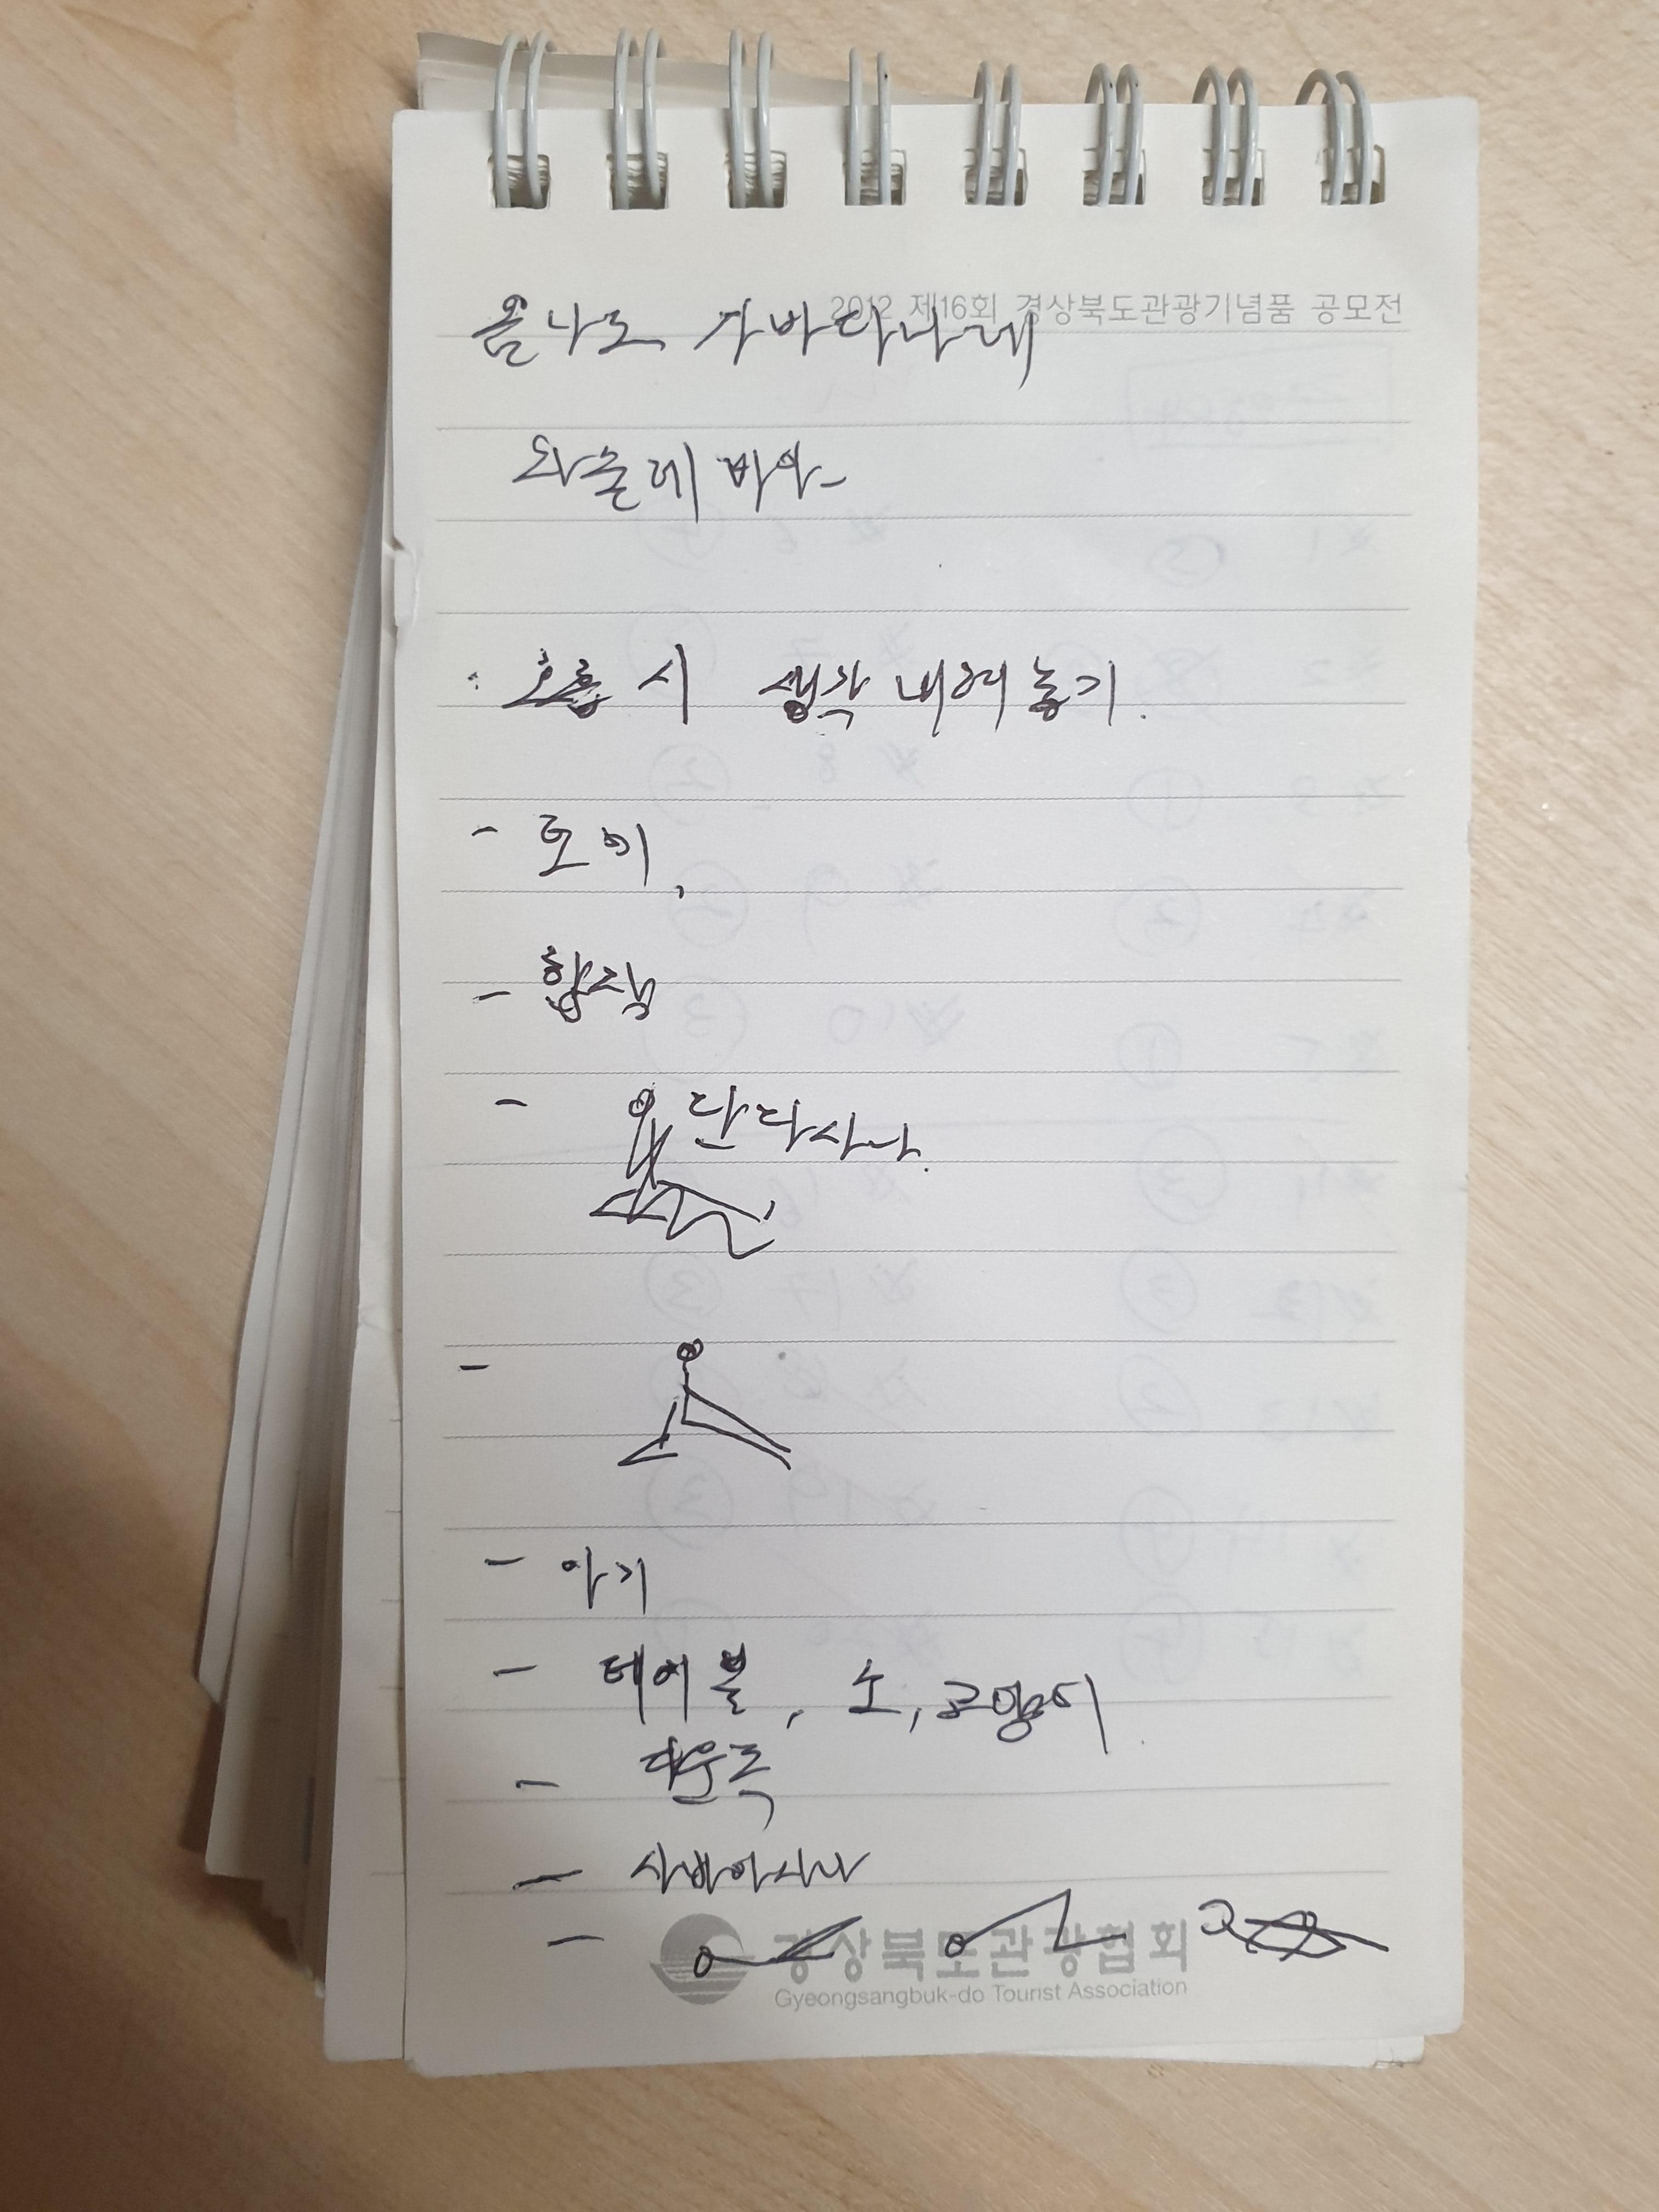 2012 제16회 경상북도관광기념품 공모전
옴 나모 가바타나레
와순데비아-
· 호흡 시 생각 내려놓기.
- 토비,
- 합장
- 단다사나.
-
- 아기
- 테이블, 소, 고양이.
- 다운독
- 사바아사나
-
경상북도관광협회
Gyeongsangbuk-do Tourist Association